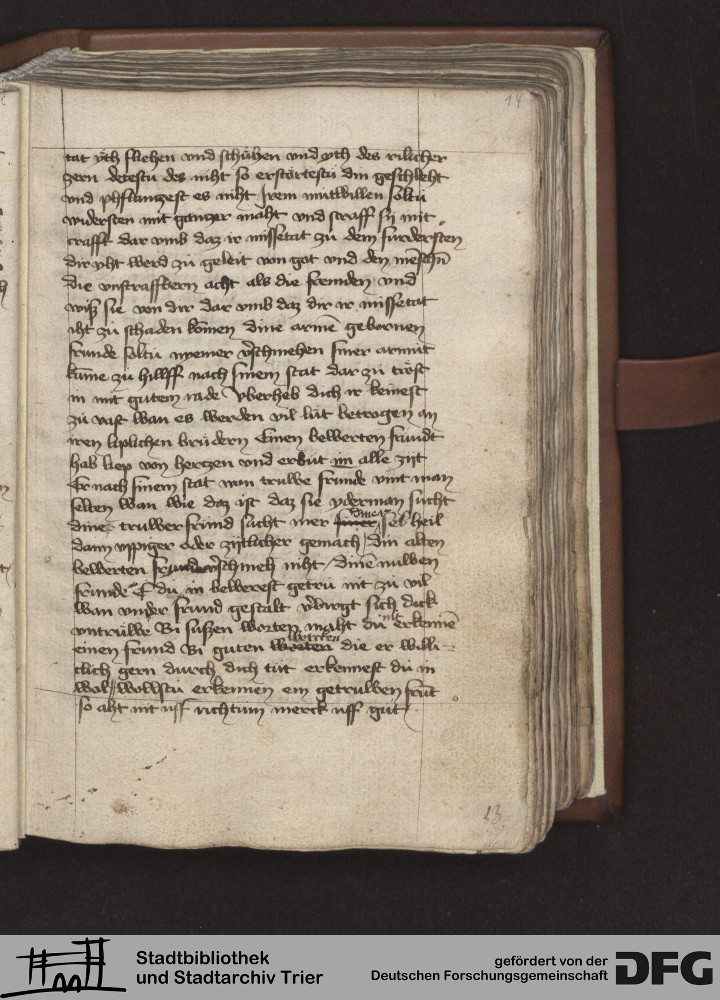 14
tät yth fliehen vnd schühen vnd yth des rilicher
zern detestu des niht so erstörtestu din geschleht
vnd phflanzest es niht Irem mütwillen soltu
widersten mit ganzer maht vnd straff sij mit
crafft dar vmb daz ir missetat zu dem furdersten
dir yht werd zü geleit von got vnd den mẽschñ
die vnstraffbern acht als die fremden vnd
wiß sie von dir dar vmb daz dir ir missetat
iht zü schaden komen dine armẽ gebornen
frunde soltü nyemer v̉schmehen siner armüt
kũme zü hillff nach sinem stat dar zü tröst
in mit gutem rade vberheb dich ir keinest
zü vast wan es werden vil lüt betrogen an
iren liplichen brüdern Einen bewerten fründt
hab liep von herzen vnd erbüt im alle zijt
Er nach sinem stat wan truwe frunde vint man
selten wan wie daz ist daz sie yderman sücht
diner truwer frund sücht mer diner sel heil
dann vppiger oder zijtlicher gemach din alten
bewerten frunde v̉schmeh niht dinẽ nuwen
frunde E du in bewerest getru nit zü vil
wan vnder frund gestalt v̉birgt sich dick
vntrüwe Bi süßen worten maht du nit erkennẽ
einen frund Bi guten wercken die er willi-
clich gern durch dich tüt erkennest dü in
wol woldstu erkennen ein getruwen frũt
so aht nit vff richtum merck vff gut
13
Stadtbibliothek
und Stadtarchiv Trier
gefördert von der
Deutschen Forschungsgemeinschaft
DFG